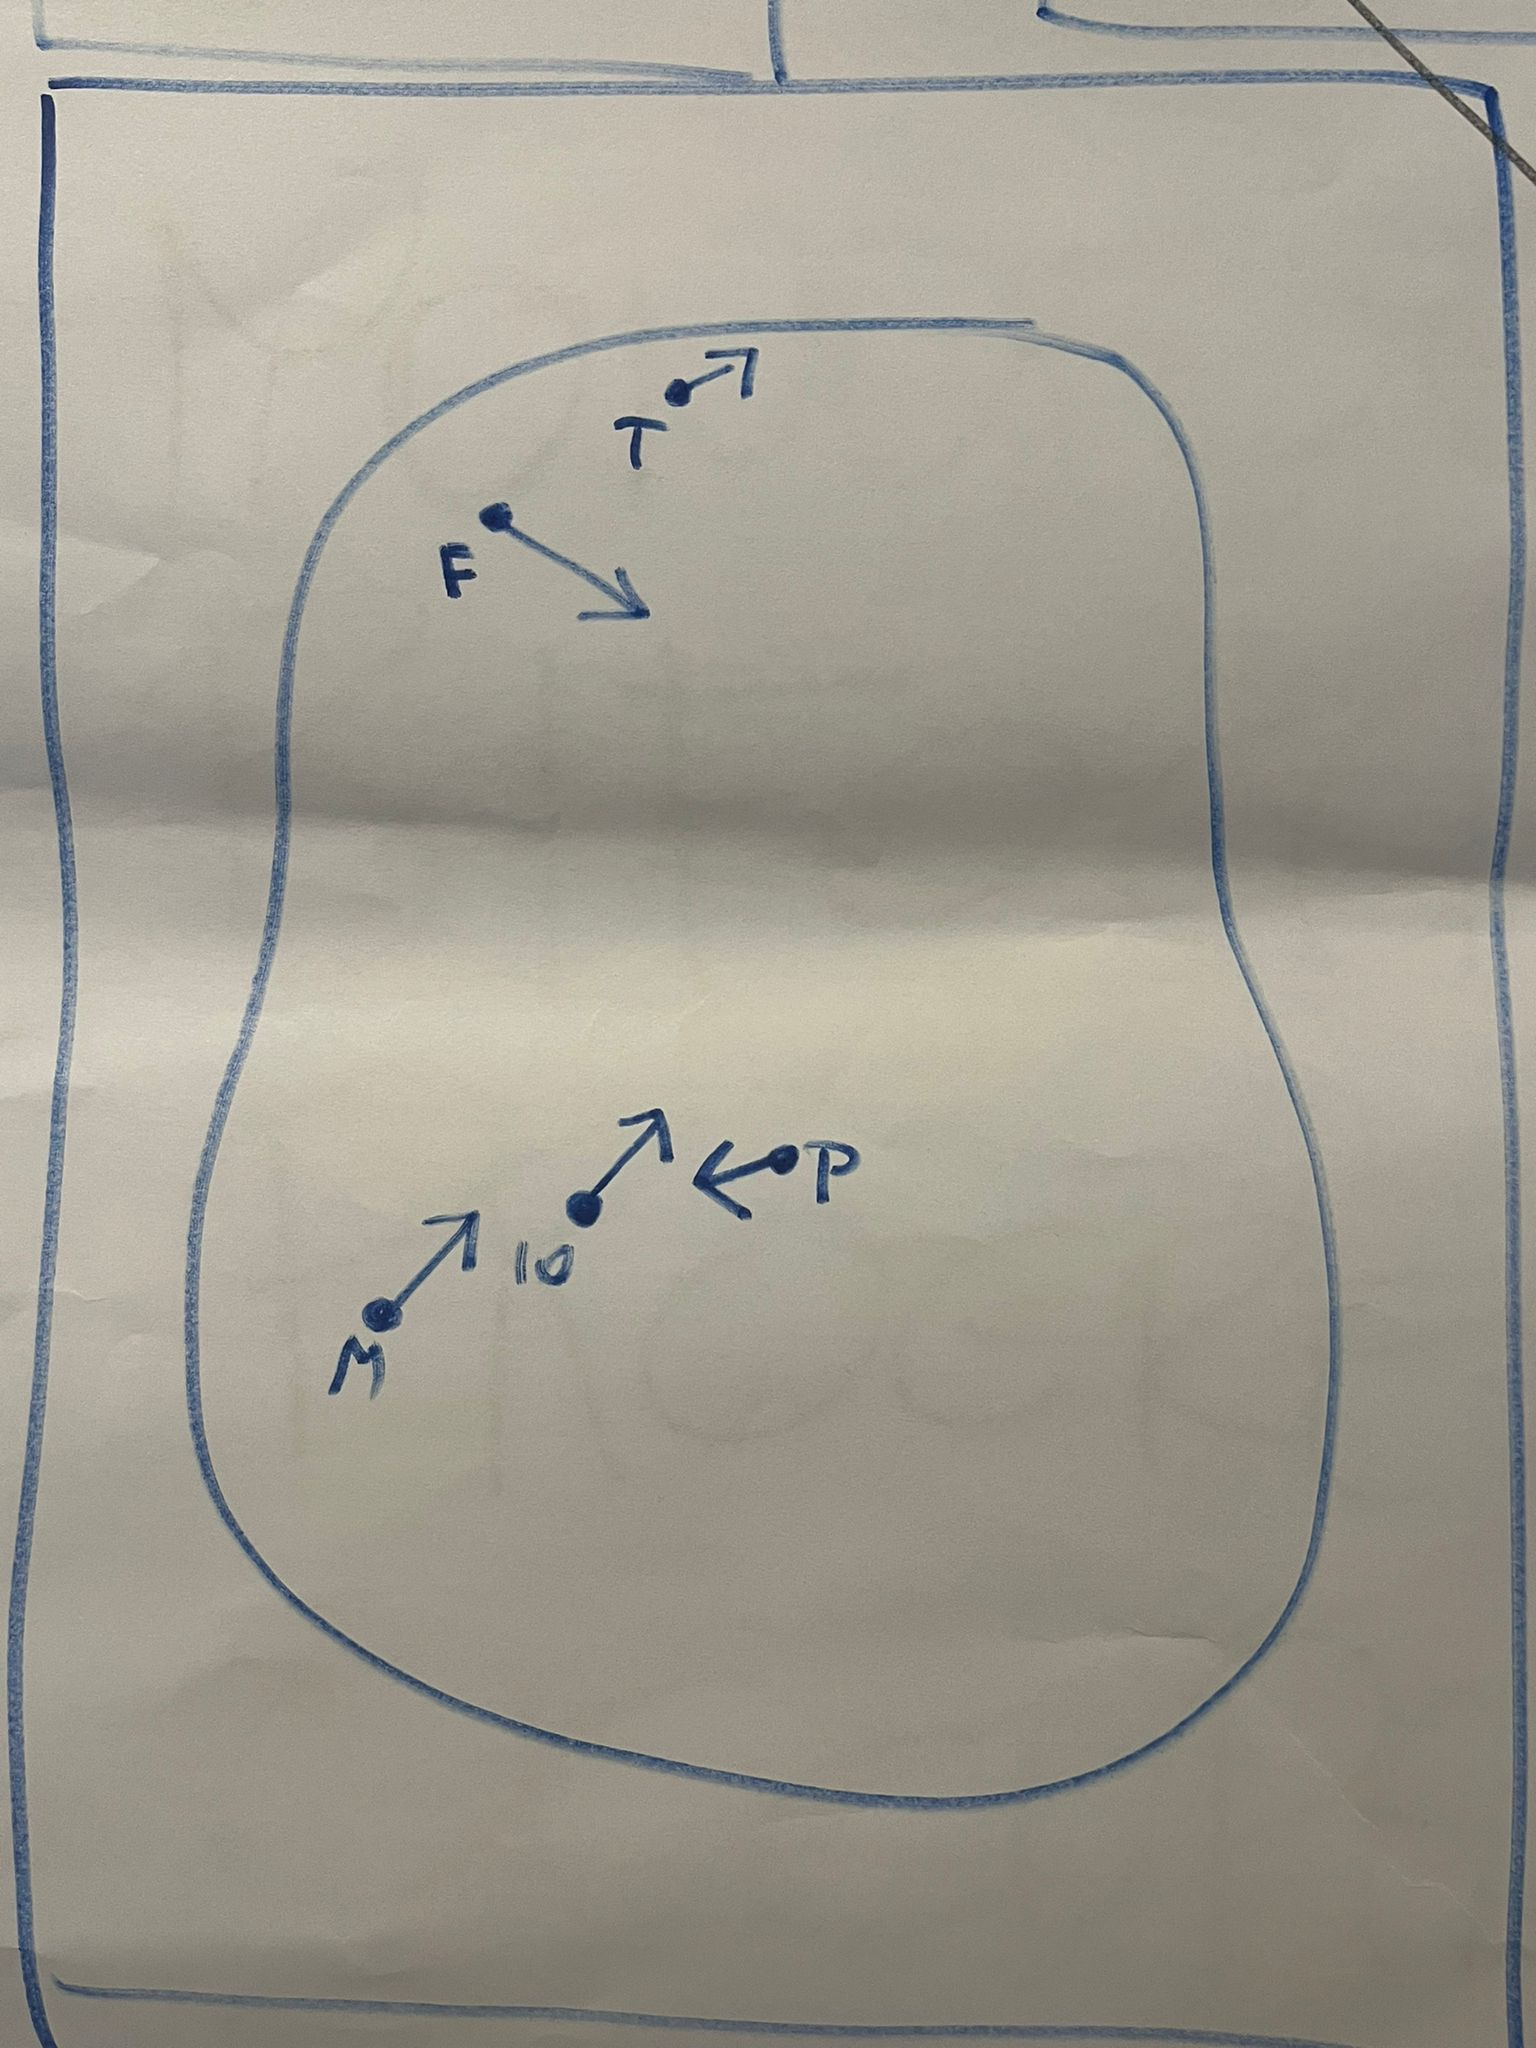 T
F
P
10
M